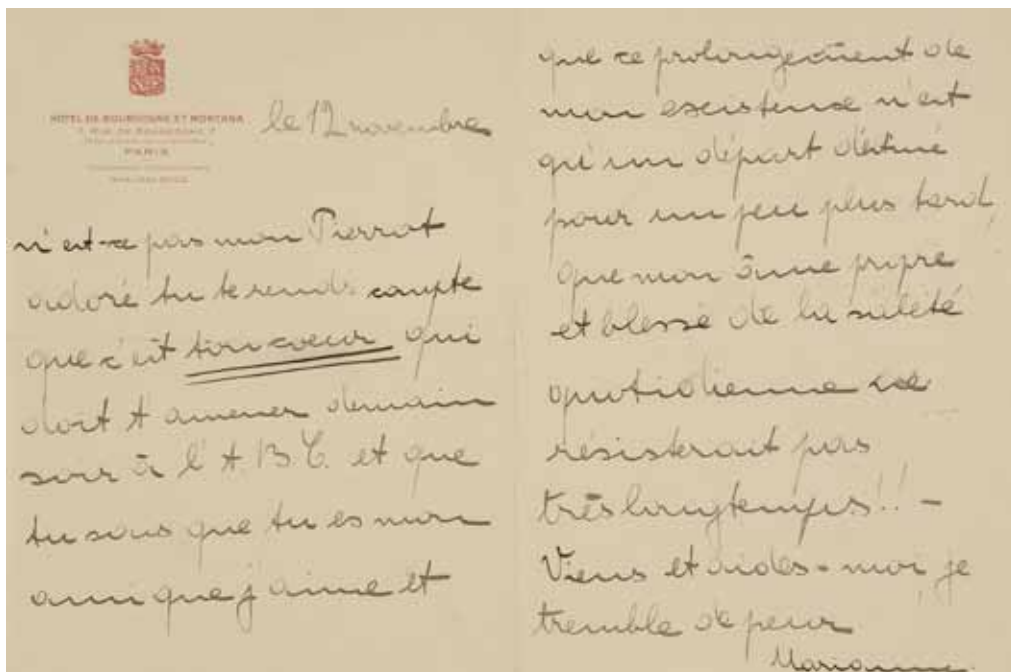 HOTEL DE BOURGOGNE ET MONTANA
PARIS
le 12 novembre
n'est-ce pas mon Pierrot
adoré tu te rends compte
que c'est ton coeur qui
doit t amener demain
soir à l'A.B.C. et que
tu sais que tu es mon
ami que j'aime et
que ce prolongement de
mon existence n'est
qu'un départ
pour un peu plus tard,
que mon âme propre
et blessé de la saleté
quotidienne ne
résisterait pas
très longtemps!! -
Viens et aides-moi je
tremble de peur
Marianne